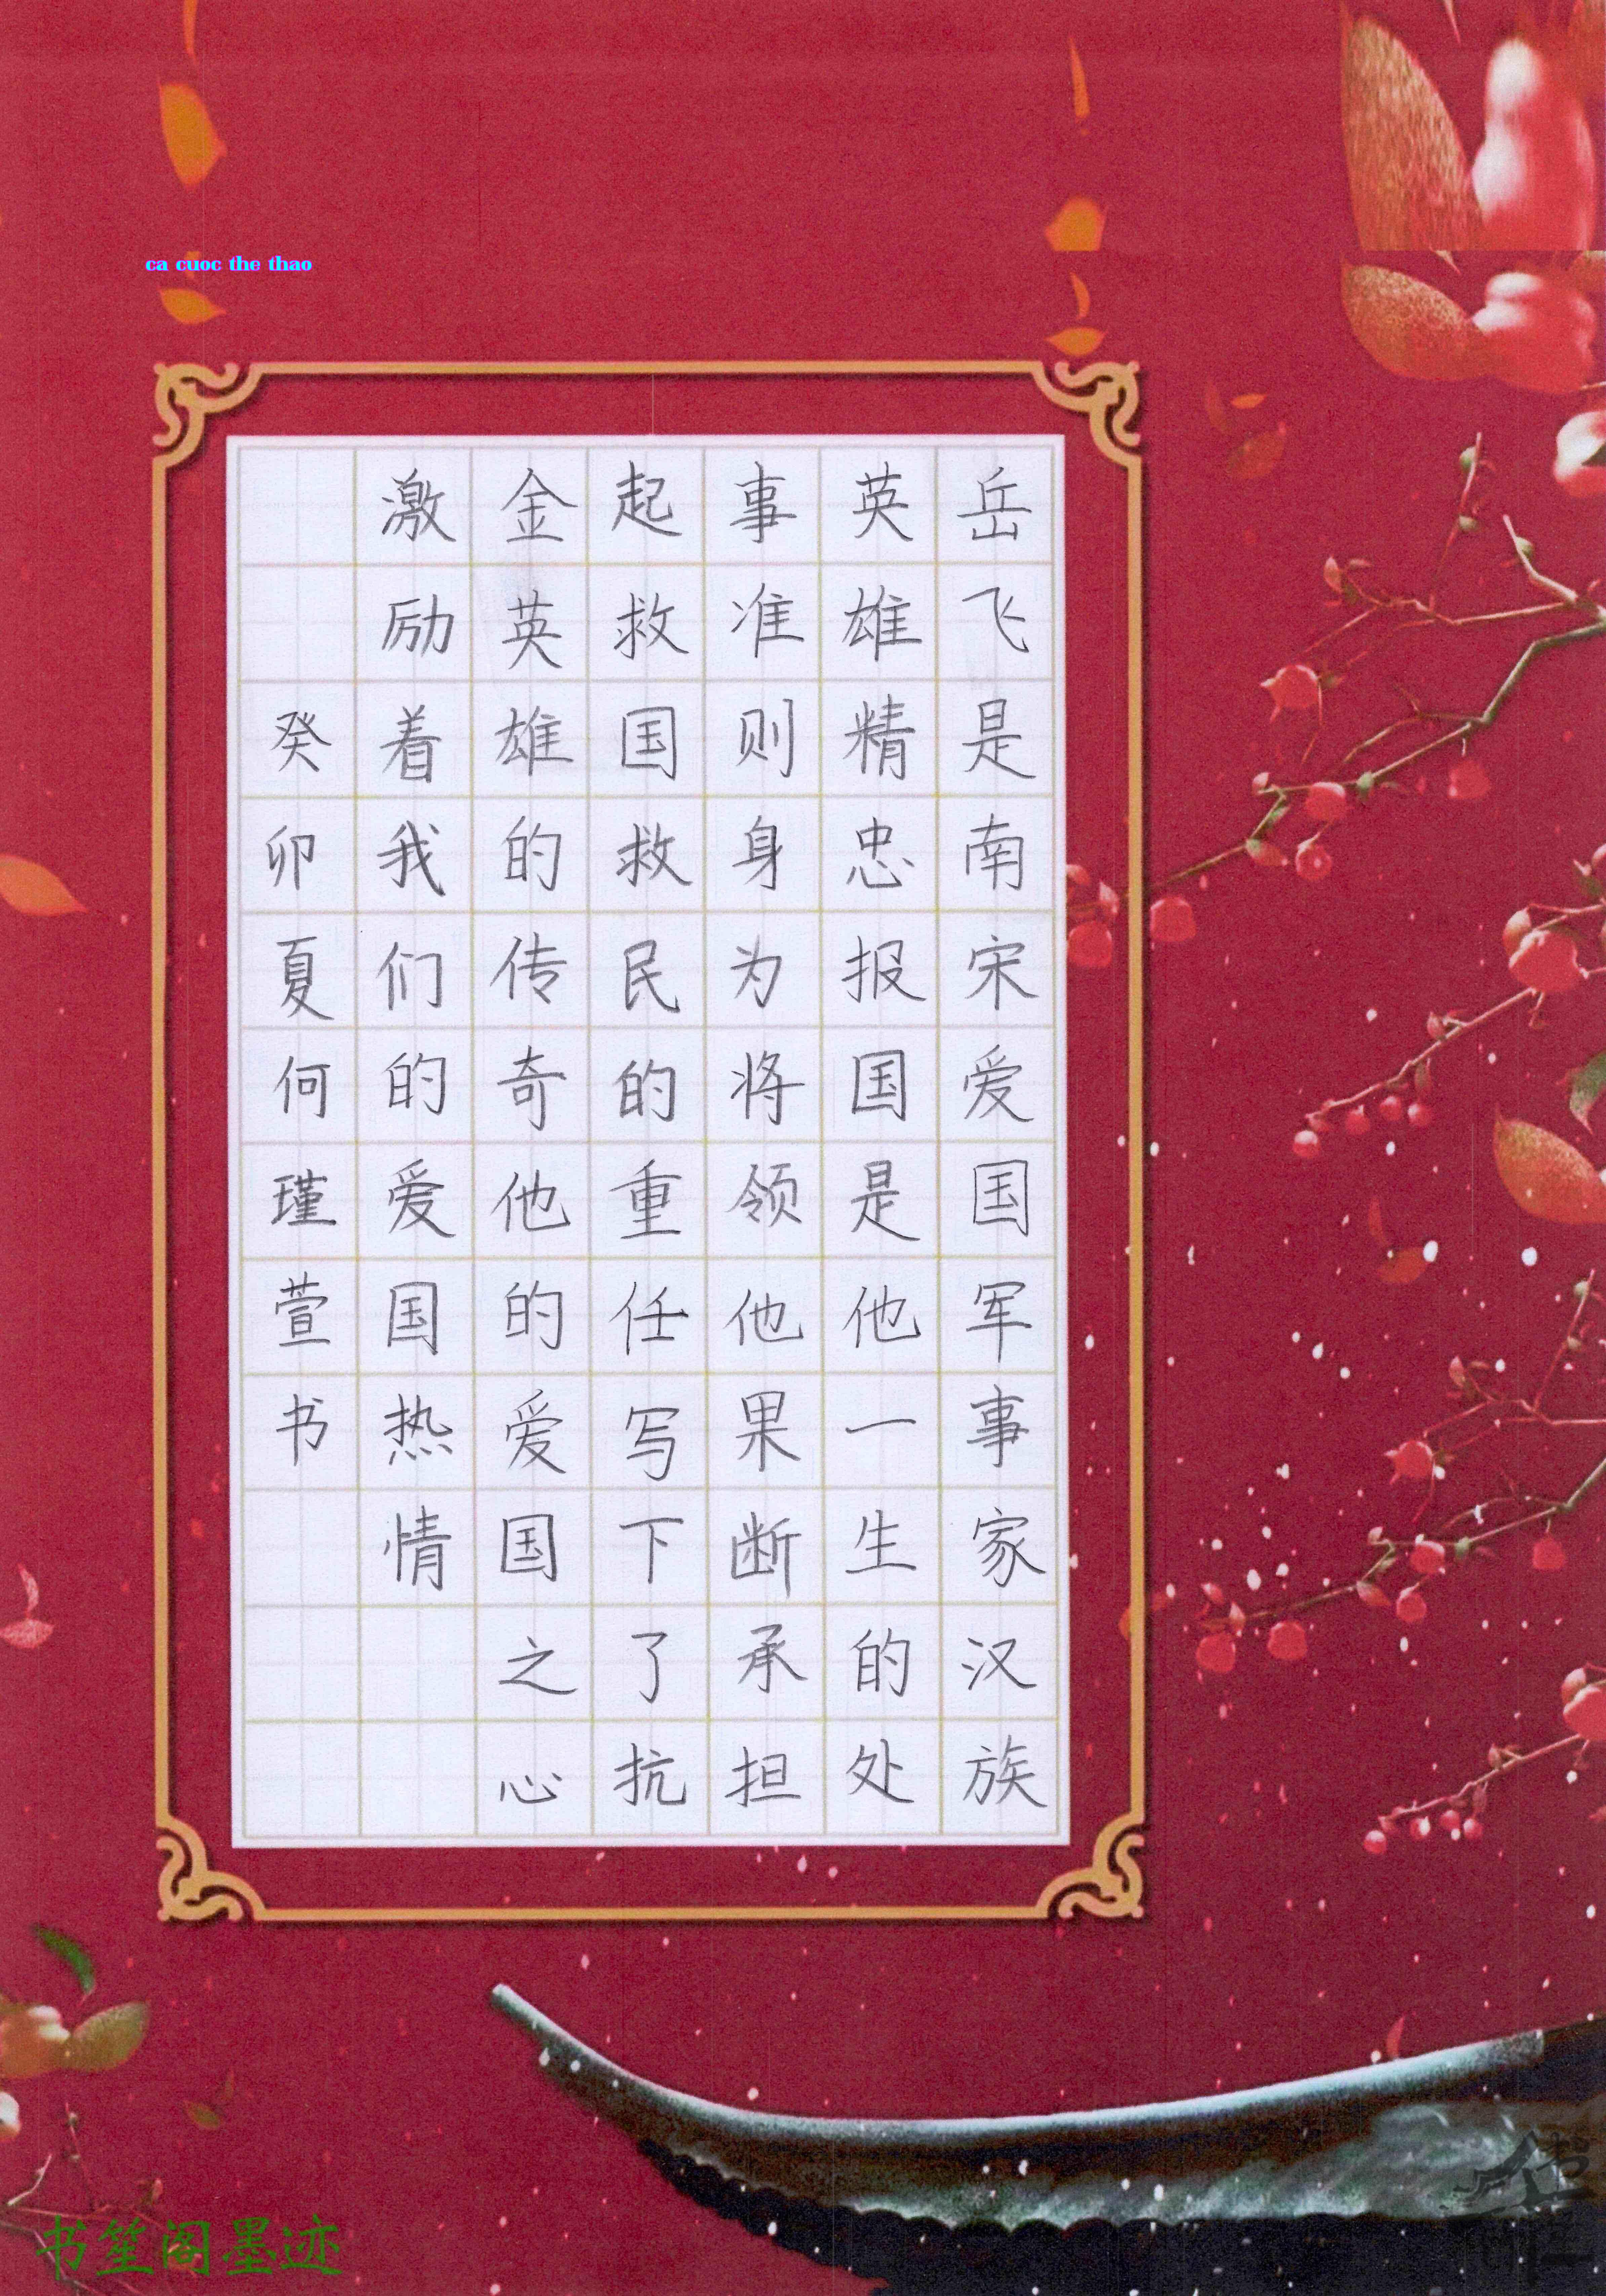 ca cuoc the thao
岳飞是南宋爱国军事家汉族
英雄精忠报国是他一生的处
事准则身为将领他果断承担
起救国救民的重任写下了抗
金英雄的传奇他的爱国之心
激励着我们的爱国热情
癸卯夏何瑾萱书
书笙阁墨迹